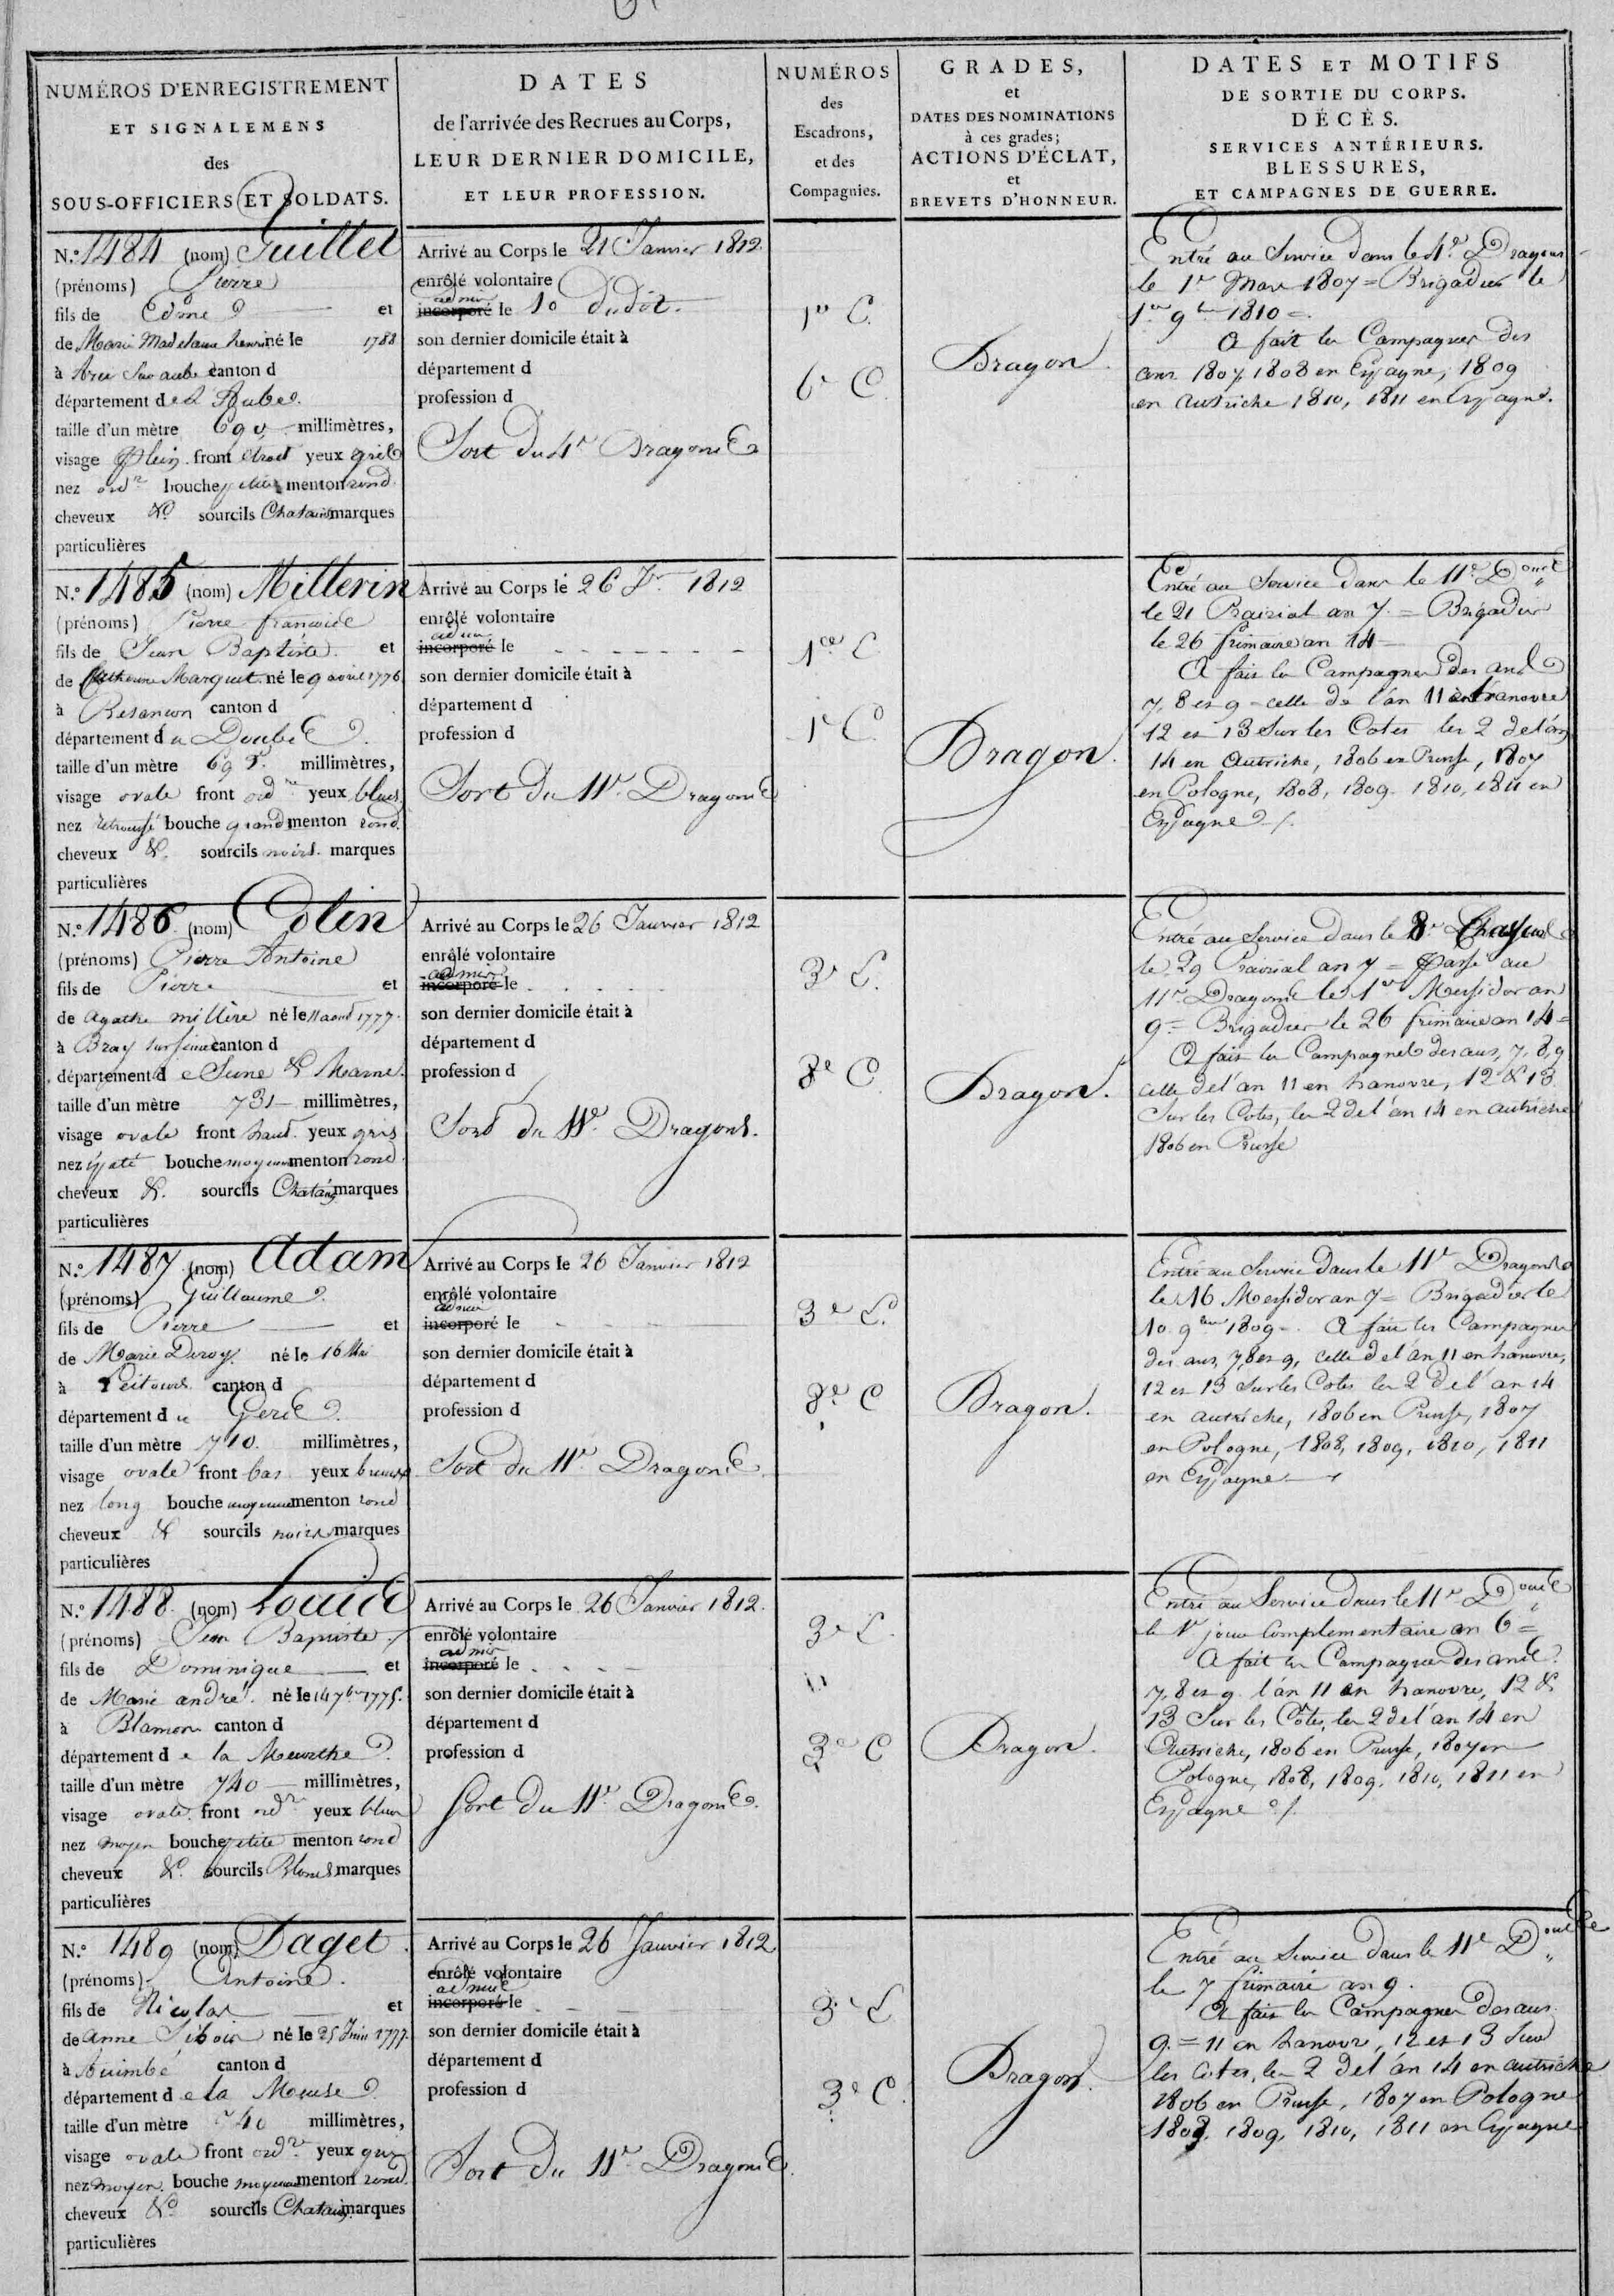 NUMÉROS D'ENREGISTREMENT
ET SIGNALEMENS
des
SOUS-OFFICIERS ET SOLDATS.
DATES
de l'arrivée des Recrues au Corps,
LEUR DERNIER DOMICILE,
ET LEUR PROFESSION.
NUMÉROS
des
Escadrons,
et des
Compagnies.
GRADES,
et
DATES DES NOMINATIONS
à ces grades;
ACTIONS D'ÉCLAT,
et
BREVETS D'HONNEUR.
DATES ET MOTIFS
DE SORTIE DU CORPS.
DÉCÈS.
SERVICES ANTÉRIEURS.
BLESSURES,
ET CAMPAGNES DE GUERRE.
N.º 1484 (nom) Guillet
(prénoms) Pierre
fils de Edme et
de Marie Madelaine né le 1788
à Arcis Sur aube canton d
département de L'Aube
taille d'un mètre 690 millimètres,
visage plein front étroit yeux gris
nez ord.re bouche petite menton rond
cheveux &c sourcils Chatains marques
particulières
Arrivé au Corps le 21 Janvier 1812.
enrôlé volontaire
admis
incorporé le 10 dudit.
son dernier domicile était à
département d
profession d
Sort du 4e Dragons
1re C.
6e C.
Dragon
Entré au Service dans le 4e Dragons
le 1er Mars 1807 = Brigadier le
1er 9bre 1810 =
A fait les Campagnes des
ans 1807, 1808 en Espagne, 1809
en Autriche 1810, 1811 en Espagne.
N.º 1485 (nom) Millerin
(prénoms) Pierre françois
fils de Jean Baptiste et
de Catherine Marguet né le 9 avril 1776
à Besançon canton d
département du Doubs
taille d'un mètre 695 millimètres,
visage ovale front ord.re yeux bleus
nez retroussé bouche grande menton rond
cheveux &c sourcils noirs marques
particulières
Arrivé au Corps le 26 Jer 1812
enrôlé volontaire
admis
incorporé le
son dernier domicile était à
département d
profession d
Sort du 11e Dragons
1re C.
1re C.
Dragon.
Entré au Service dans le 11e Dons
le 21 Prairial an 7 = Brigadier
le 26 frimaire an 14 =
A fait les Campagnes des ans
7, 8 et 9 = celle de l'an 11 en hanovre
12 et 13 Sur les Cotes les 2 de l'an
14 en Autriche, 1806 en Prusse, 1807
en Pologne, 1808, 1809 1810, 1811 en
Espagne
N.º 1486 (nom) Colin
(prénoms) Pierre Antoine
fils de Pierre et
de Agathe millère né le 11 aout 1777
à Bray sur seine canton d
département de Seine & Marne
taille d'un mètre 731 millimètres,
visage ovale front haut yeux gris
nez épaté bouche moyenne menton rond
cheveux &c sourcils Chatains marques
particulières
Arrivé au Corps le 26 Janvier 1812
enrôlé volontaire
admis
incorporé le
son dernier domicile était à
département d
profession d
Sort du 11e Dragons.
3e
8e C
Dragon.
Entré au Service dans le 8e Chasseurs
le 29 Prairial an 7 = Passé au
11e Dragons le 1er Messidor an
9 = Brigadier le 26 frimaire an 14 =
A fait les Campagnes des ans, 7, 8, 9
celle de l'an 11 en hanovre, 12 & 13
Sur les Cotes, les 2 de l'an 14 en autriche
1806 en Prusse
N.º 1487 (nom) Adam
(prénoms) Guillaume
fils de Pierre et
de Marie Deroy né le 16 Mai
à canton d
département du Gers
taille d'un mètre 710 millimètres,
visage ovale front bas yeux
nez long bouche moyenne menton rond
cheveux & sourcils noirs marques
particulières
Arrivé au Corps le 26 Janvier 1812
enrôlé volontaire
admis
incorporé le
son dernier domicile était à
département d
profession d
Sort du 11e Dragons
3e
8e C
Dragon.
Entré au Service dans le 11e Dragons
le 16 Messidor an 7 = Brigadier le
10 9bre 1809 = A fait les Campagnes
des ans, 7, 8 et 9, celle de l'an 11 en hanovre,
12 et 13 Sur les Cotes les 2 de l'an 14
en autriche, 1806 en Prusse, 1807
en Pologne, 1808, 1809, 1810, 1811
en Espagne
N.º 1488 (nom) Louis
(prénoms) Jean Baptiste
fils de Dominique et
de Marie andré né le 14 7bre 1775.
à Blamon canton d
département de la Meurthe
taille d'un mètre 740 millimètres,
visage ovale front ord.re yeux bleus
nez moyen bouche petite menton rond
cheveux &c sourcils Blonds marques
particulières
Arrivé au Corps le 26 Janvier 1812.
enrôlé volontaire
admis
incorporé le
son dernier domicile était à
département d
profession d
Sort du 11e Dragons
3e
3e C
Dragon.
Entré au Service dans le 11e Dons
le 1er jour Complementaire an 6 =
A fait les Campagnes des ans
7, 8 et 9 l'an 11 en hanovre, 12 &
13 Sur les Côtes, les 2 de l'an 14 en
Autriche, 1806 en Prusse, 1807 en
Pologne, 1808, 1809, 1810, 1811 en
Espagne
N.º 1489 (nom) Daget
(prénoms) Antoine
fils de Nicolas et
de anne né le 25 Juin 1777
à canton d
département de la Meuse
taille d'un mètre 740 millimètres,
visage ovale front ord.re yeux gris
nez moyen bouche moyenne menton rond
cheveux &c sourcils Chatains marques
particulières
Arrivé au Corps le 26 Janvier 1812
enrôlé volontaire
admis
incorporé le
son dernier domicile était à
département d
profession d
Sort du 11e Dragons
3e
3e C.
Dragon.
Entré au Service dans le 11e Dons
le 7 frimaire an 9.
A fait les Campagnes des ans
9 = 11 en hanovre, 12 et 13 Sur
les Cotes, les 2 de l'an 14 en autriche
1806 en Prusse, 1807 en Pologne
1808, 1809, 1810, 1811 en Espagne